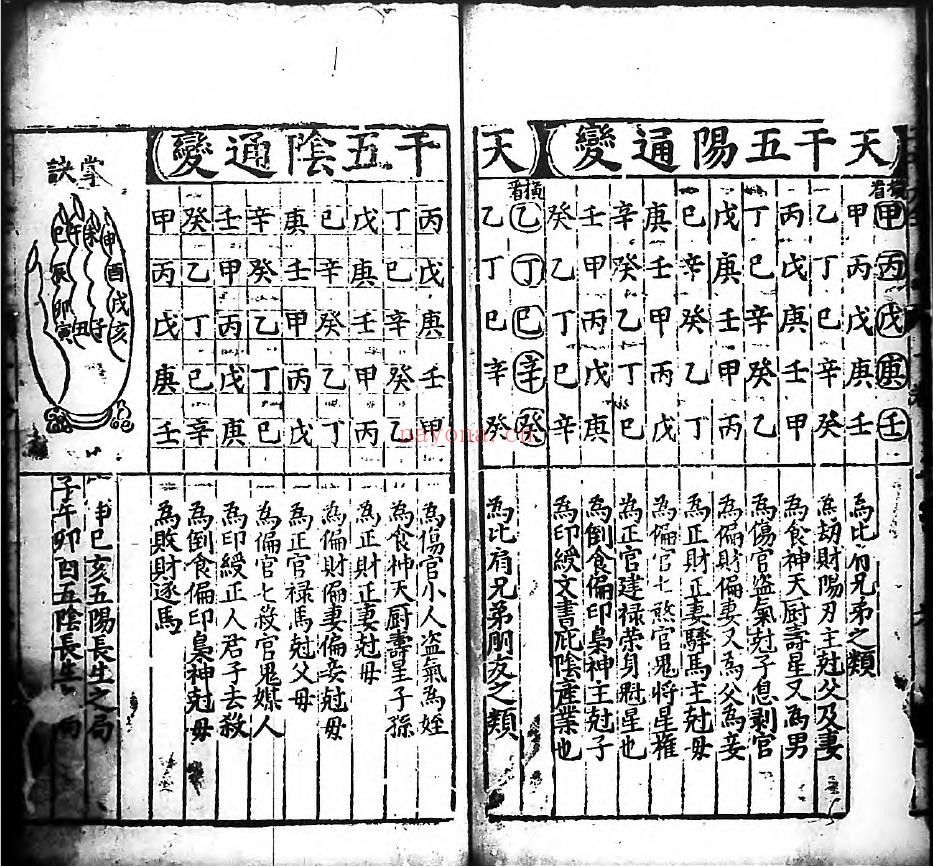 天干五陽通變
橫看
甲丙戊庚壬
甲丙戊庚壬 為比肩兄弟之類
乙丁巳辛癸 為劫財陽刃主尅父及妻
丙戊庚壬甲 為食神天厨壽星又為男
丁巳辛癸乙 為傷官盗氣尅子息剥官
戊庚壬甲丙 為偏財偏妻又為父為妾
巳辛癸乙丁 為正財正妻驛馬主尅母
庚壬甲丙戊 為偏官七煞官鬼將星權
辛癸乙丁巳 為正官建禄荣身尉星也
壬甲丙戊庚 為倒食偏印梟神主尅子
癸乙丁巳辛 為印綬文書庇陰産業也
天
橫看
乙丁巳辛癸
乙丁巳辛癸 為比肩兄弟朋友之類
干五陰通變
丙戊庚壬甲 為傷官小人盗氣為姪
丁巳辛癸乙 為食神天厨壽星子孫
戊庚壬甲丙 為正財正妻尅母
巳辛癸乙丁 為偏財偏妻偏妾尅母
庚壬甲丙戊 為正官禄馬尅父母
辛癸乙丁巳 為偏官七殺官鬼媒人
壬甲丙戊庚 為印綬正人君子去殺
癸乙丁巳辛 為倒食偏印梟神尅母
甲丙戊庚壬 為敗財逐馬
掌訣
申酉戌亥
未
午
巳辰卯寅
丑子
申巳亥五陽長生之局
子午卯酉五陰長生局
nayona.cn